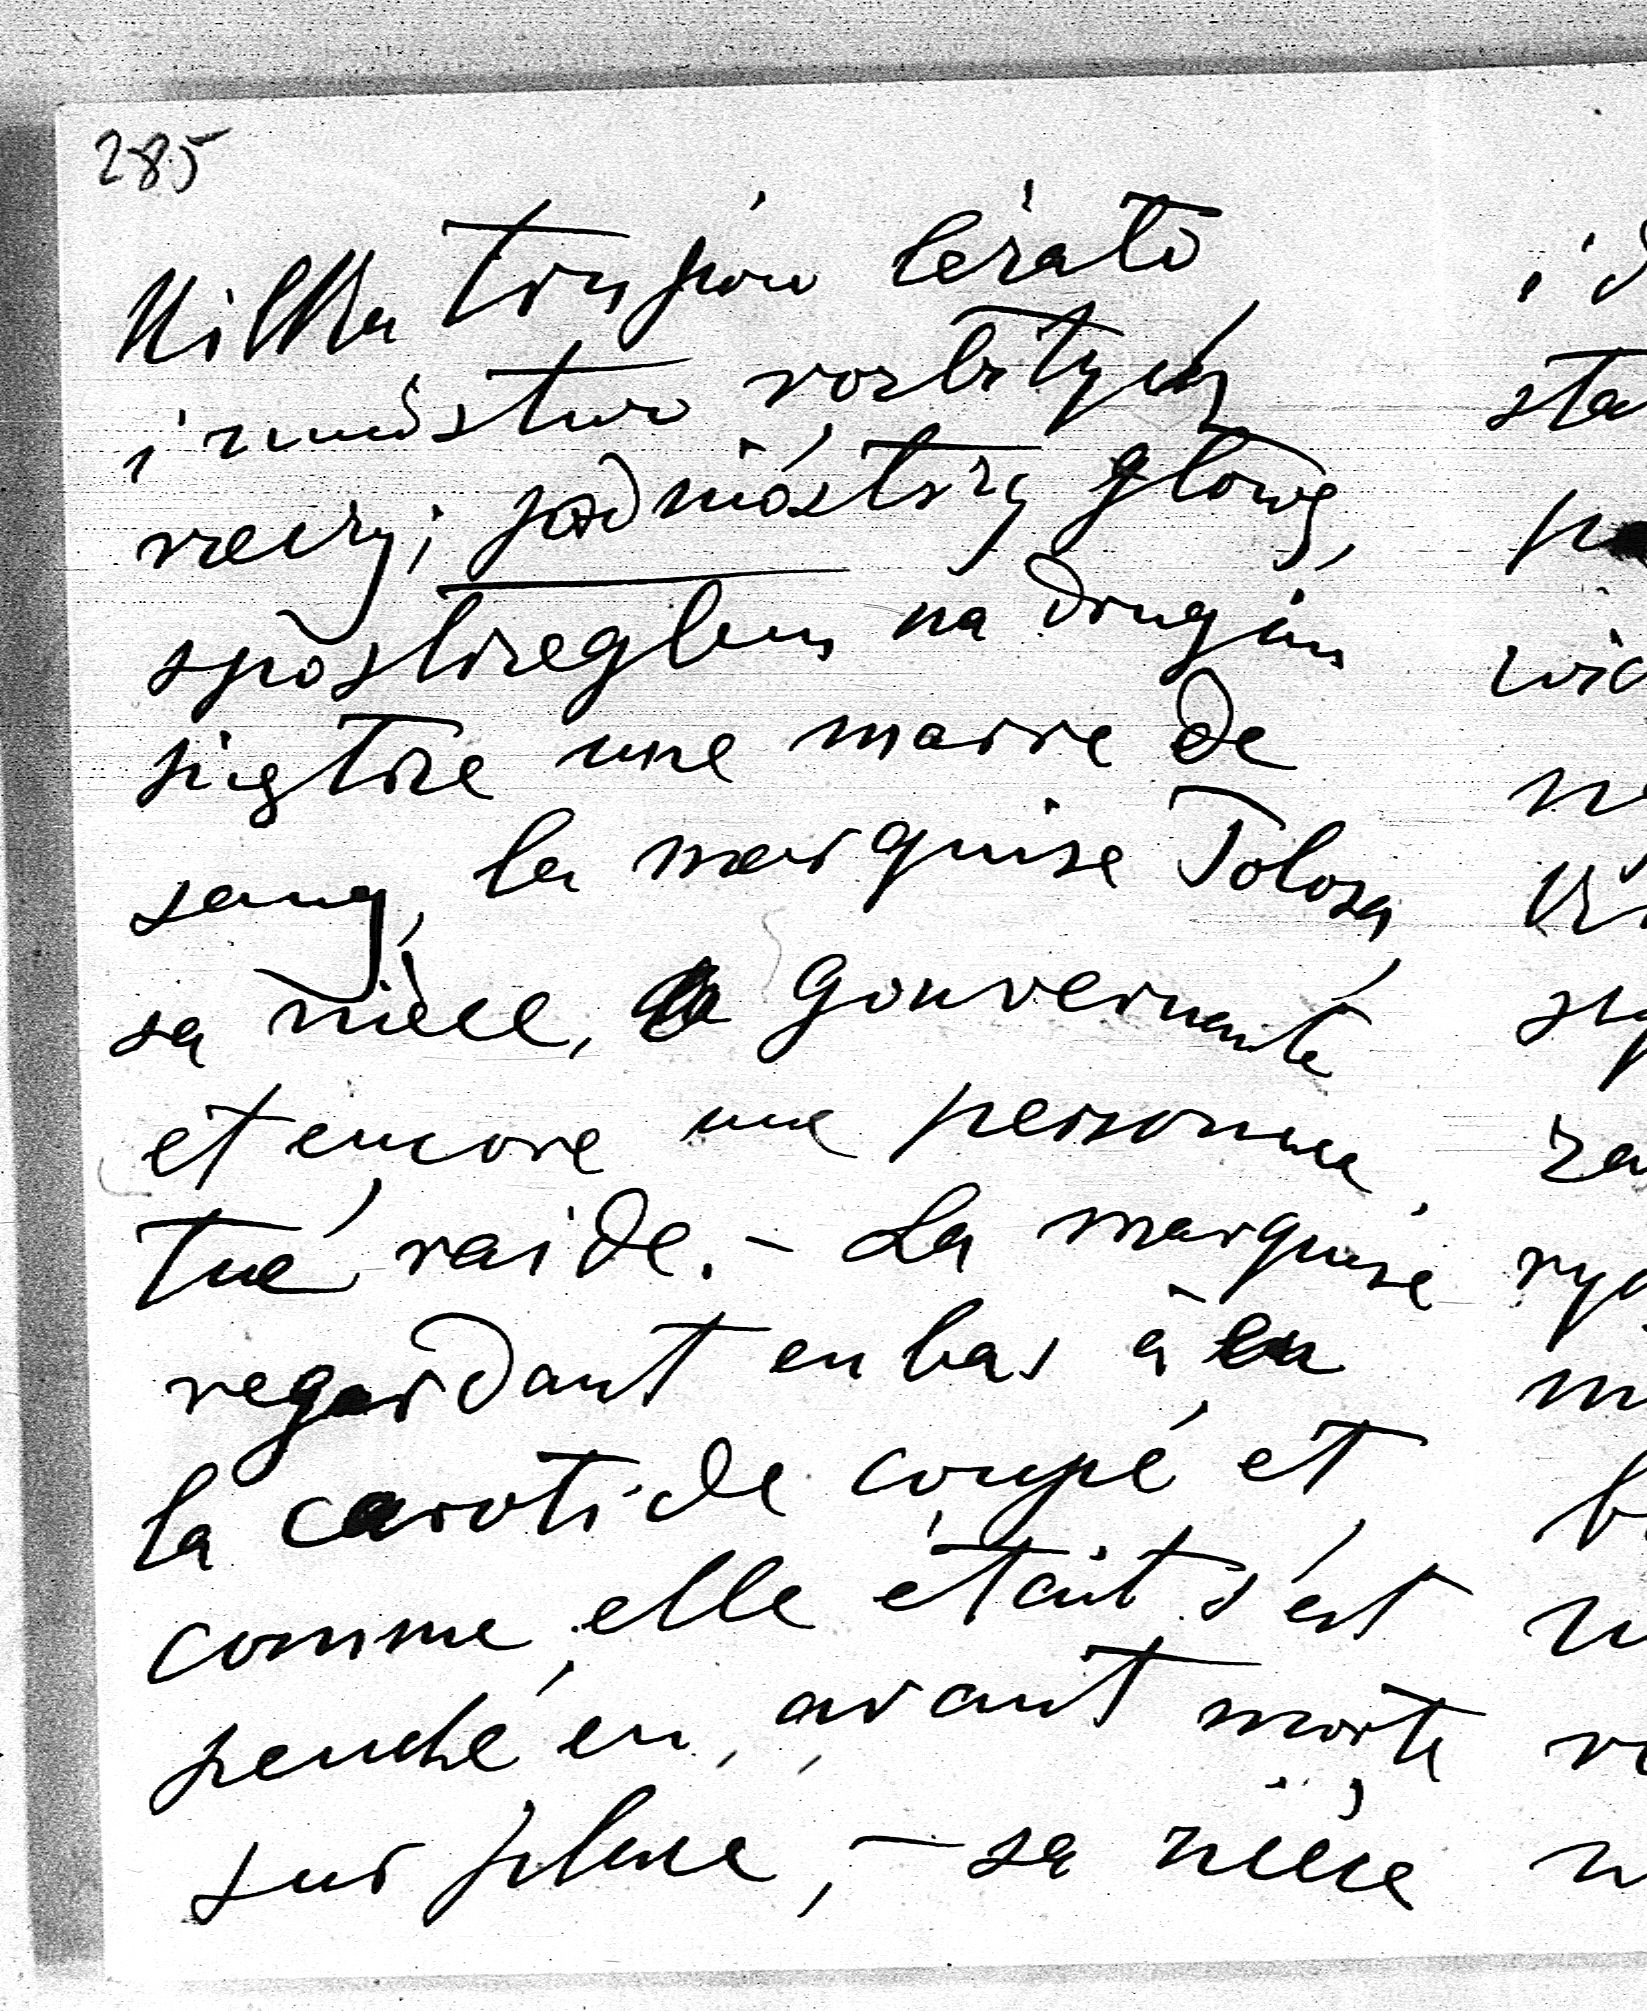 285
Kilka trupów leżało
i mnóstwo rozbitych
rzeczy; podniósłszy głowę,
spostrzegłem na drugim
piętrze une marre de
sang, la marquise Tolosa,
sa nièce, gouvernante
et encore une personne
tué raide. – La marquise
regardant en bas à eu
la carotide coupé et
comme elle était s'est
penché en avant morte
sur place, – sa nièce